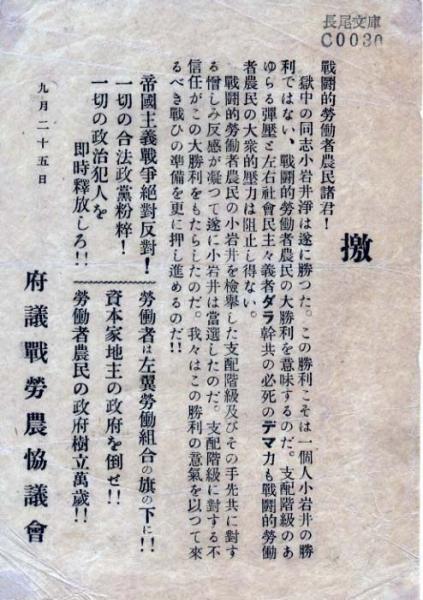 長尾文庫
C0030
檄
戰鬪的勞働者農民諸君!
獄中の同志小岩井淨は遂に勝つた。この勝利こそは一個人小岩井の勝
利ではない、戰鬪的勞働者農民の大勝利を意味するのだ。支配階級のあ
ゆらる彈壓と左右社會民主々義者ダラ幹共の必死のデマ力も戰鬪的勞働
者農民の大衆的壓力は阻止し得ない。
戰鬪的勞働者農民の小岩井を檢擧した支配階級及びその手先共に對す
る憎しみ反感が凝つて遂に小岩井は當選したのだ。支配階級に對する不
信任がこの大勝利をもたらしたのだ。我々はこの勝利の意氣を以つて來
るべき戰ひの準備を更に押し進めるのだ!!
帝國主義戰爭絕對反對!
一切の合法政黨粉粹!
一切の政治犯人を
即時釋放しろ!!
勞働者は左翼勞働組合の旗の下に!!
資本家地主の政府を倒せ!!
勞働者農民の政府樹立萬歲!!
九月二十五日
府議戰勞農協議會